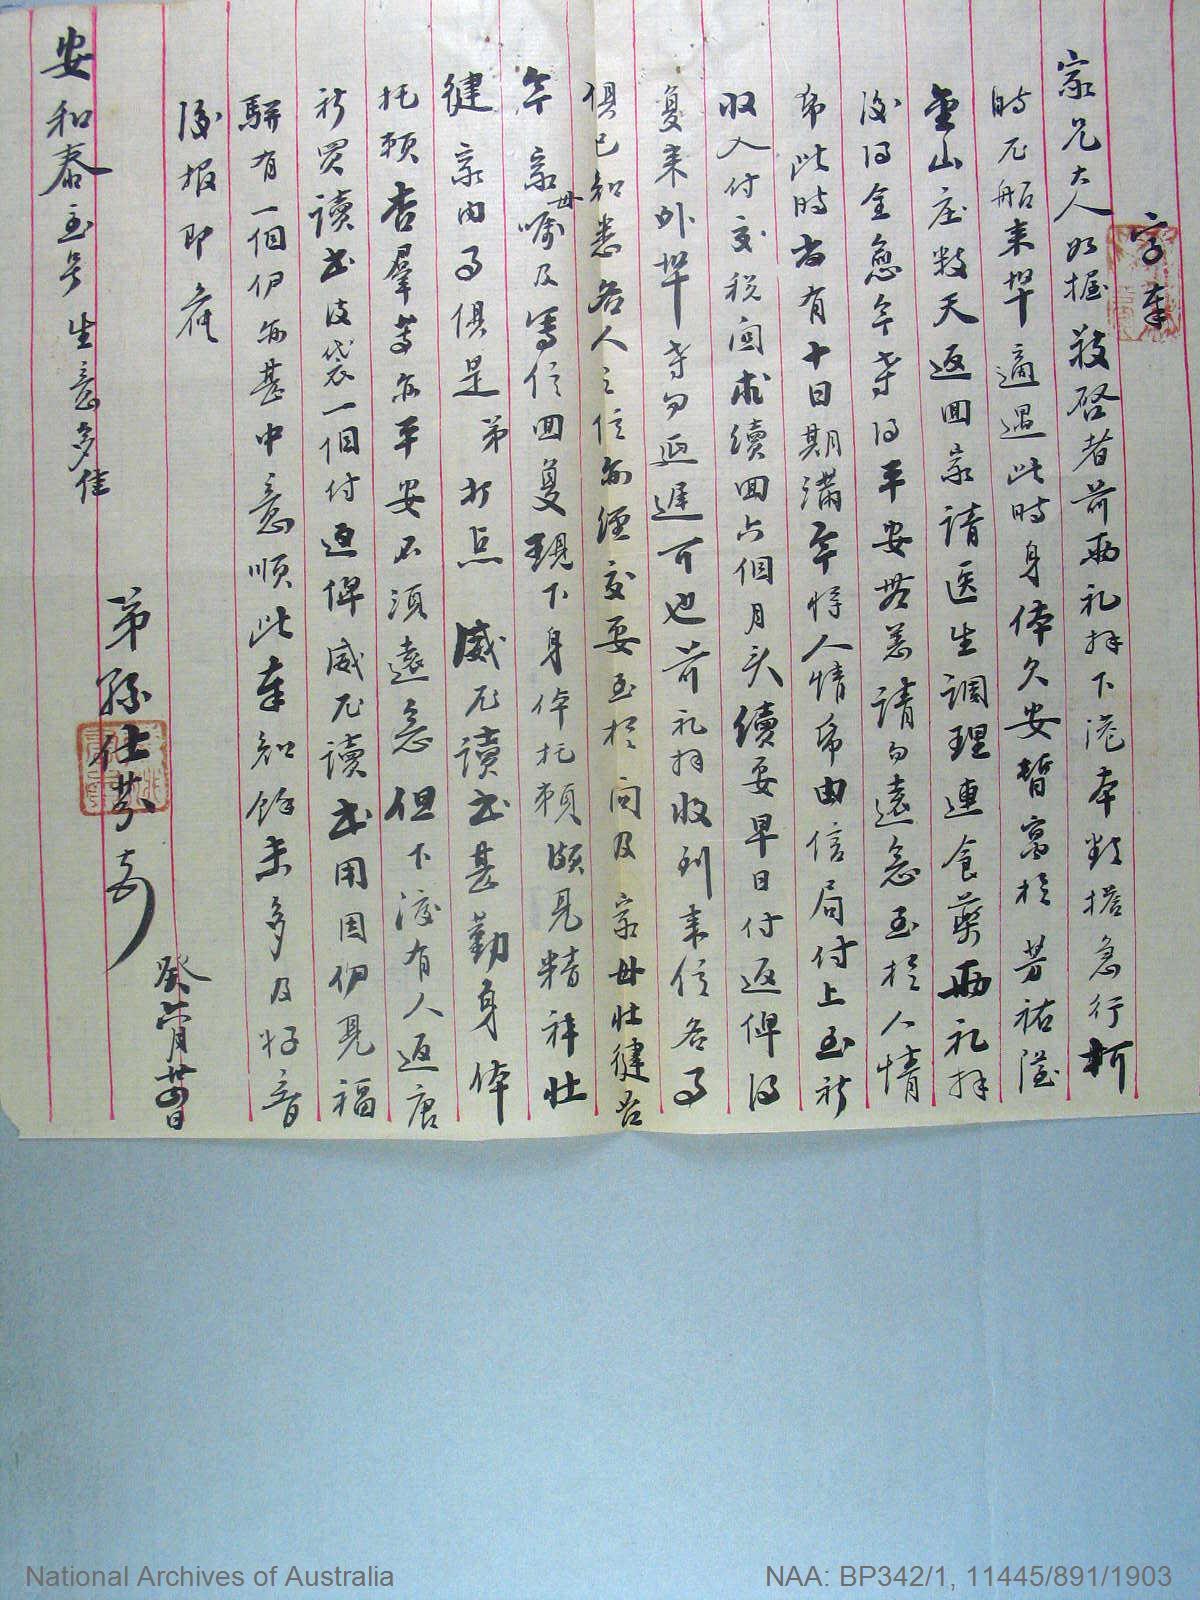 字奉
家兄大人如握 敬啓者前兩礼拜下港本擬搭急行
時凡船来埠適遇此時身体欠安暫寓於 芳祐隆
金山庄数天返回家請医生調理連食藥兩礼拜
後得全愈今幸得平安無恙請勿遠念至於人情
帋此時尚有十日期滿今将人情帋由信局付上至祈
收入付交税関求續回六個月头續要早日付返俾得
复来外埠幸勿延遲可也前礼拜收到来信各事
俱已知悉各人之信亦經交妥至於 问及 家母壮健否
今 家母嘱及寫信回复現下身体托賴頗見精神壮
健 家内事俱是 弟打点 威 讀书甚勤身体
托賴 杏羣等亦平安不須遠念但下渡有人返唐
祈買讀书皮袋一個付返俾威 讀书用因伊見福
駢有一個伊亦甚中意順此奉知餘未多及好音
後报即候
安和泰宝号 生意多佳
弟孫仕 頓
癸六月廿四日
National Archives of Australia
NAA: BP342/1, 11445/891/1903